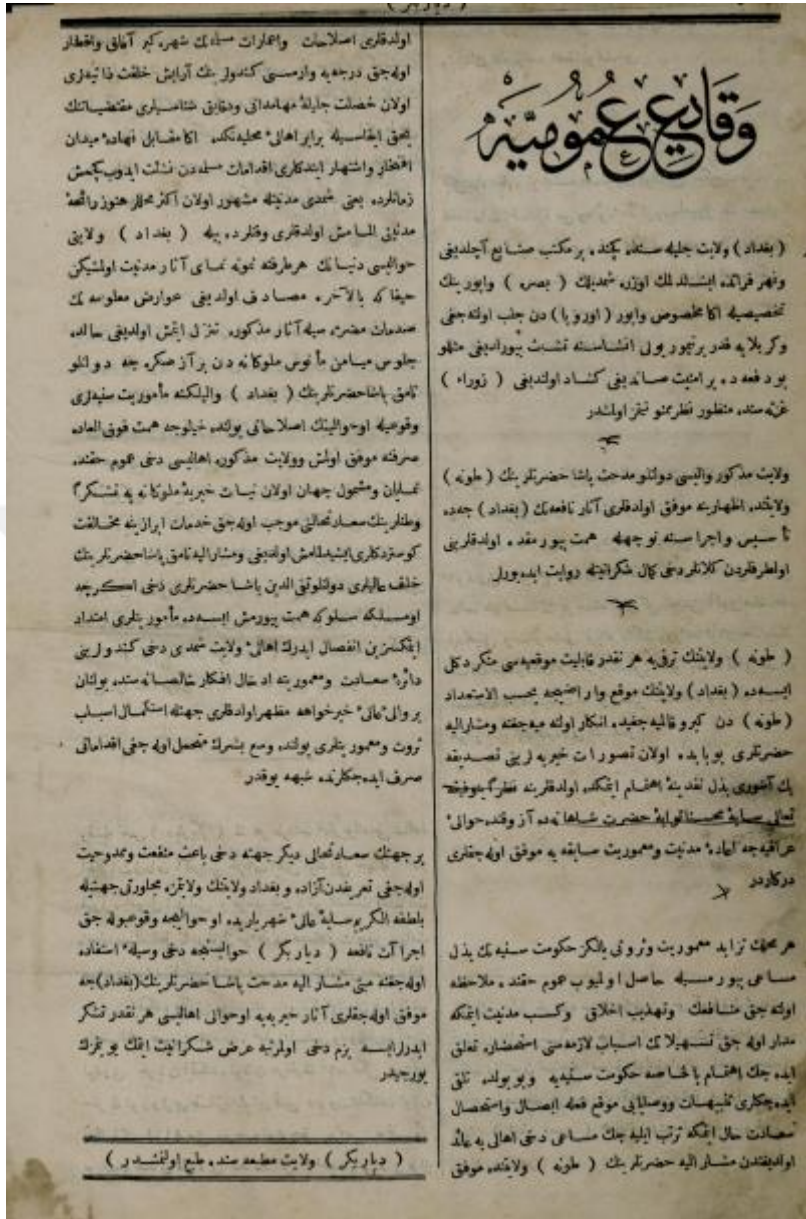 ( دیاربکر )
وقایع عمومیه
( بغداد ) ولایت جلیله سنده کچنده بر مکتب صنایع آچلدیغی
ونهر فراتده ایشلدلمك اوزره شمدیلك ( بصره ) واپورینك
تخصیصیله اکا مخصوص واپور ( اوروپا ) دن جلب اولنه جغی
وکربلایه قدر برتیمور یولی انشاسنه تشبث بیورلدیغی مثللو
بو دفعه ده بر امنیت صاندیغی کشاد اولندیغی ( زوراء )
غزته سنده منظور نظر ممنونیتمز اولمشدر
ولایت مذکور والیسی دولتلو مدحت پاشا حضرتلرینك ( طونه )
ولایتنده اظهارینه موفق اولدقلری آثار نافعه نك ( بغداد ) جه ده
تأسیس واجراسنه توجهله همت بیورمقده اولدقلرینی
اولطرفلردن کلانلر دخی کمال شکرانیتله روایت ایدیورلر
( طونه ) ولایتنك ترقی یه هر نقدر قابلیت موقعیه سی منکر دکل
ایسه ده ( بغداد ) ولایتنك موقع واراضیجه بحسب الاستعداد
( طونه ) دن کیرو قالمیه جغی ده انکار اولنه میه جغنه ومشارالیه
حضرتلری بو بابده اولان تصورات خیریه لرینی تصدیقه
پك آشوری بذل نقدینهٔ اهتمام ایتمکده اولدقلرینه نظراً بتوفیقه
تعالی سایهٔ محسناتوایهٔ حضرت شاهانه ده آز وقتده حوالیٔ
عراقیه جه اعادهٔ مدنیت ومعموریت سابقه یه موفق اوله جقلری
درکاردر
هر محلك تزاید معموریت وثروتی یالکز حکومت سنیه نك بذل
مساعی بیورمسیله حاصل اولمیوب عموم حقنده ملاحظه
اولنه جق منافعك وتهذیب اخلاق وکسب مدنیت ایتمکه
مدار اوله جق تسهیلاتك اسباب لازمه سی استحضارینه تعلق
ایده جك اهتمام باشلجه حکومت سنیه یه وبو یولده تلقی
ایده جکلری تنبیهات ووصایایی موقع فعله ایصال واستحصال
سعادت حال ایتمکه ترتب ایلیه جك مساعی دخی اهالی یه عائد
اولدیغندن مشار الیه حضرتلرینك ( طونه ) ولایتنده موفق
اولدقلری اصلاحات واعمارات مسلمه نك شهرتکیر آفاق واقطار
اوله جق درجه یه وارمسی کندولرینك آرایش خلقت ذاتیه لری
اولان خصلت جلیلهٔ مهامدانی ودقایق شناسیلری مقتضیاتنك
بحق ایفاسیله برابر اهالیٔ محلیه نکده اکا مقابل نهادهٔ میدان
افتخار واشتهار ایتدکلری اقدامات مسلمه دن نشأت ایدوب کچمش
زمانلرده یعنی شمدی مدنیتله مشهور اولان اکثر محللر هنوز رائحهٔ
مدنیتی الماmش اولدقلری وقتلرده بیله ( بغداد ) ولایتی
حوالیسی دنیانك هر طرفنه نمونه نمای آثار مدنیت اولمشیکن
حیفا که بالآخره مصادف اولدیغی عوارض معلومه نك
صدمات مضره سیله آثار مذکوره تنزل ایتمش اولدیغی حالده
جلوس میامن مأنوس ملوکانه دن بر آز صکره جه دولتلو
نامق پاشا حضرتلرینك ( بغداد ) والیلکنه مأموریت سنیه لری
وقوعیله اوحوالینك اصلاحاتی یولنده خیلوجه همت فوق العاده
صرفنه موفق اولمش وولایت مذکوره اهالیسی دخی عموم حقنده
نمایان ومشمول جهان اولان نیات خیریهٔ ملوکانه یه تشکراً
وطنلرینك سعادتحالنی موجب اوله جق خدمات ابرازینه مخالفت
کوستردکلری ایشیدلمامش اولدیغی ومشار الیه نامق پاشا حضرتلرینك
خلف عالیلری دولتلو تقی الدین پاشا حضرتلری دخی اکرچه
اومسلکه سلوکه همت بیورمش ایسه ده مأموریتلری امتداد
ایتمکسزین انفصال ایدرك اهالیٔ ولایت شمدی دخی کندولرینی
دائرهٔ سعادت ومعموریته ادخال افکار خالصانه سنده بولنان
بر والیٔ عالیٔ خیرخواهه مظهر اولدقلری جهتله استکمال اسباب
ثروت ومعموریتلری یولنده وسع بشرك متحمل اوله جغی اقداماتی
صرف ایده جکلرنده شبهه یوقدر
بر جهتك سعادتحالی دیکر جهته دخی باعث منفعت وممدوحیت
اوله جغی تعریفدن آزاده وبغداد ولایتنك ولایتمزه مجاورتی جهتیله
بلطفه الکریم سایهٔ عالیٔ شهریاریده اوحوالیجه وقوعبوله جق
اجراآت نافعه ( دیاربکر ) حوالیسنجه دخی وسیلهٔ استفاده
اوله جغنه مبنی مشار الیه مدحت پاشا حضرتلرینك ( بغداد ) جه
موفق اوله جقلری آثار خیریه یه اوحوالی اهالیسی هر نقدر تشکر
ایدرلر ایسه بزم دخی اولمرتبه عرض شکرانیت ایتمك بویمزك
بورجیدر
( دیاربکر ) ولایت مطبعه سنده طبع اولنمشدر )